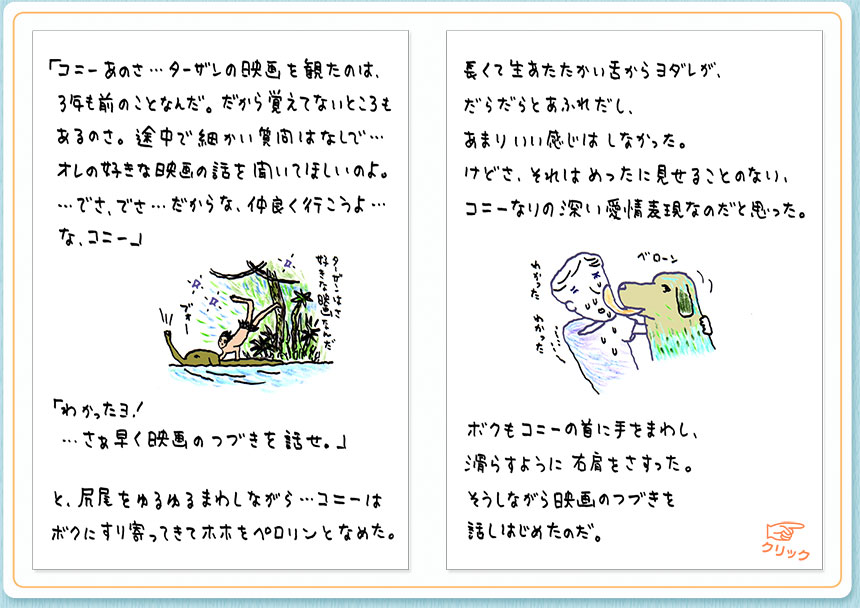 「コニーあのさ…ターザンの映画を観たのは、
3年も前のことなんだ。だから覚えてないところも
あるのさ。途中で細かい質問はなしで…
オレの好きな映画の話を聞いてほしいのよ。
…でさ、でさ…だからな、仲良く行こうよ…
な、コニー」
ターザンはさ
好きな映画なんだ
ブォー
「わかったヨ!
…さぁ早く映画のつづきを話せ。」
と、尻尾をゆるゆるまわしながら…コニーは
ボクにすり寄ってきてホホをペロリンとなめた。
長くて生あたたかい舌からヨダレが、
だらだらとあふれだし、
あまりいい感じはしなかった。
けどさ、それはめったに見せることのない、
コニーなりの深い愛情表現なのだと思った。
ベローン
わかった
わかった
ボクもコニーの首に手をまわし、
滑らすように右肩をさすった。
そうしながら映画のつづきを
話しはじめたのだ。
クリック